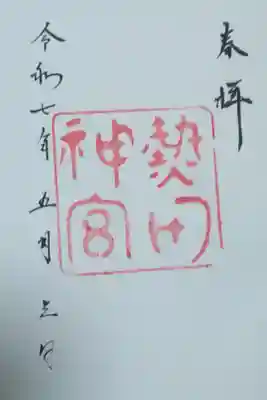 奉拝
熱田
神宮
令和七年五月三日